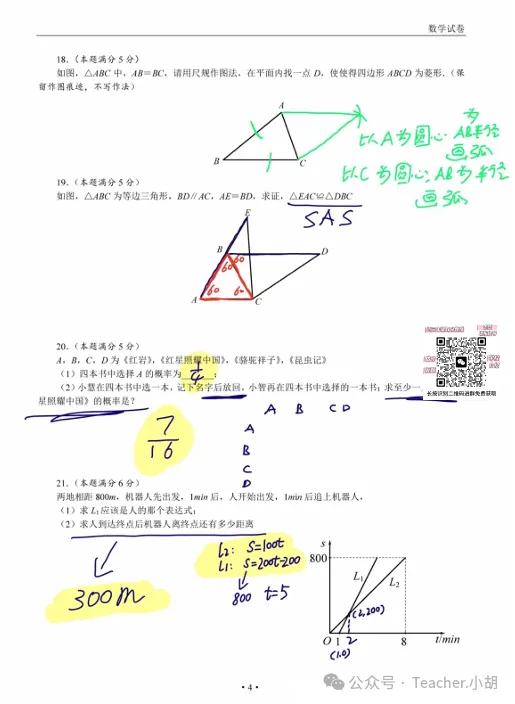 数学试卷
18.（本题满分5分）
如图，△ABC 中，AB=BC，请用尺规作图法，在平面内找一点 D，使使得四边形 ABCD 为菱形.（保
留作图痕迹，不写作法）
A
B
C
以A为圆心，AB为半径
画弧
以C为圆心，AB为半径
画弧
19.（本题满分5分）
如图，△ABC 为等边三角形，BD∥AC，AE=BD，求证，△EAC≌△DBC
SAS
E
B
60
60
D
60
60
A
C
20.（本题满分5分）
A，B，C，D 为《红岩》，《红星照耀中国》，《骆驼祥子》，《昆虫记》
（1）四本书中选择 A 的概率为 1/4；
（2）小慧在四本书中选一本，记下名字后放回，小智再在四本书中选择的一本书；求至少一
星照耀中国》的概率是？
长按识别二维码进群免费获取
A B C D
A
B
C
D
7/16
21.（本题满分6分）
两地相距 800m，机器人先出发，1min 后，人开始出发，1min 后追上机器人，
（1）求 L₁ 应该是人的那个表达式；
（2）求人到达终点后机器人离终点还有多少距离
300m
l₂: S=100t
l₁: S=200t-200
800 t=5
s
800
L₁
L₂
(2,200)
O 1 2 8 t/min
(1,0)
·4·
公众号 · Teacher.小胡